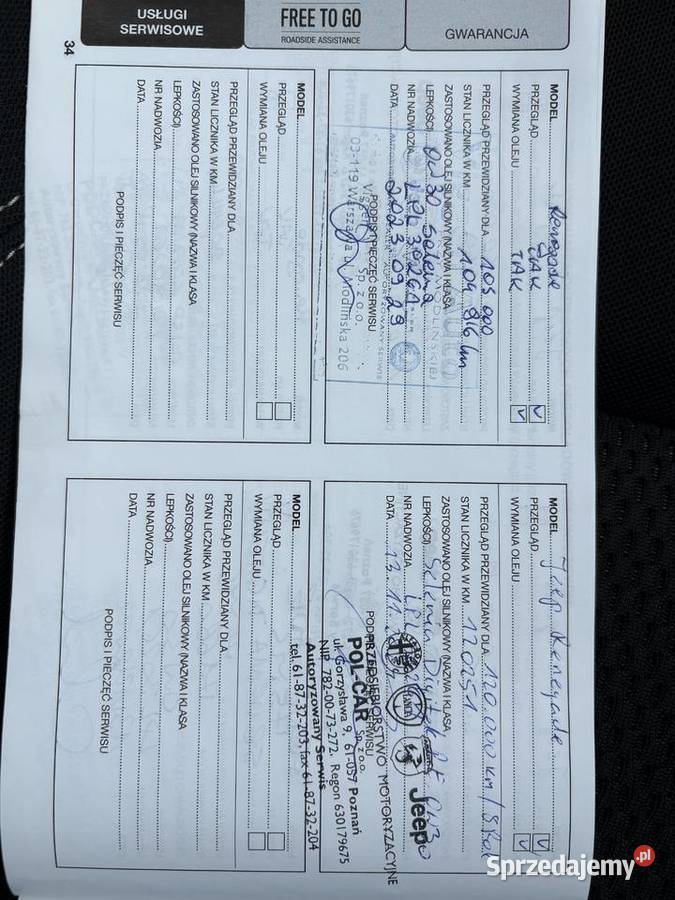 USŁUGI
SERWISOWE
FREE TO GO
ROADSIDE ASSISTANCE
GWARANCJA
34
MODEL Renegade
PRZEGLĄD TAK
WYMIANA OLEJU TAK
PRZEGLĄD PRZEWIDZIANY DLA 105 000
STAN LICZNIKA W KM 104 816 km
ZASTOSOWANO OLEJ SILNIKOWY (NAZWA I KLASA
LEPKOŚCI) 0W30 Selenia
NR NADWOZIA
DATA 2023 09 29
PODPIS I PIECZĘĆ SERWISU
Sp. z o.o.
03-119 Warszawa ul. Modlińska 206
MODEL
PRZEGLĄD
WYMIANA OLEJU
PRZEGLĄD PRZEWIDZIANY DLA
STAN LICZNIKA W KM
ZASTOSOWANO OLEJ SILNIKOWY (NAZWA I KLASA
LEPKOŚCI)
NR NADWOZIA
DATA
PODPIS I PIECZĘĆ SERWISU
MODEL Jeep Renegade
PRZEGLĄD
WYMIANA OLEJU
PRZEGLĄD PRZEWIDZIANY DLA 120.000 km/
STAN LICZNIKA W KM 120251
ZASTOSOWANO OLEJ SILNIKOWY (NAZWA I KLASA
LEPKOŚCI) Selenia
NR NADWOZIA
DATA 13.11.
PODPIS I PIECZĘĆ SERWISU
Jeep
PRZEDSIĘBIORSTWO MOTORYZACYJNE
POL-CAR Sp. z o.o.
ul. Gorzysława 9, 61-057 Poznań
NIP 782-00-73-272, Regon 630179675
Autoryzowany Serwis
tel. 61-87-32-203, fax 61-87-32-204
MODEL
PRZEGLĄD
WYMIANA OLEJU
PRZEGLĄD PRZEWIDZIANY DLA
STAN LICZNIKA W KM
ZASTOSOWANO OLEJ SILNIKOWY (NAZWA I KLASA
LEPKOŚCI)
NR NADWOZIA
DATA
PODPIS I PIECZĘĆ SERWISU
Sprzedajemy.pl